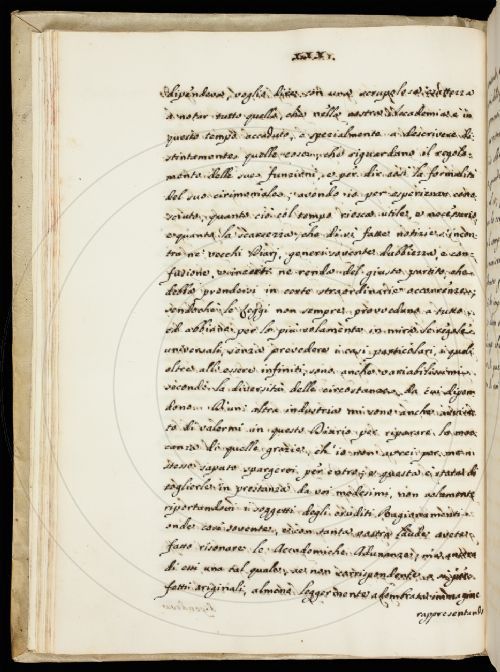 dipendeva, voglio dire con una scrupolosa esattezza
a notar tutto quello, che nella nostra Accademia è in
questo tempo accaduto, e specialmente a descrivere di-
stintamente quelle cose, che riguardano il regola-
mento delle sue funzioni, e per dir così la formalità
del suo cirimoniale; avendo io per esperienza cono-
sciuto, quanto ciò col tempo riesca utile, e necessario,
e quanto la scarsezza, che di sì fatte notizie s'incon-
tra ne' vecchi Diarj, generi sovente dubbiezza, e con-
fusione, e incerti ne renda del giusto partito, che
debba prendersi in certe straordinarie occorrenze;
sendochè le Leggi non sempre provvedano a tutto,
ed abbiano per lo più solamente in mira le regole
universali, senza prevedere i casi particolari, i quali
oltre all' essere infiniti, sono anche variabilissimi,
secondo la diversità delle circostanze, da cui dipen-
dono. D'un' altra industria mi sono anche
to di valermi in questo Diario per riparare la man-
canza di quelle grazie, ch' io non avrei per me
stesso saputo spargervi per entro; e questa è stata di
toglierle in prestanza da voi medesimi, non solamente
riportandovi i soggetti degli eruditi Ragionamenti
onde così sovente, e con tanta vostra laude avete
fatto risonare le Accademiche Adunanze, ma
di essi una tal quale, se non corrispondente a
fatti originali, almeno leggermente adombrata immagine
rappresentando